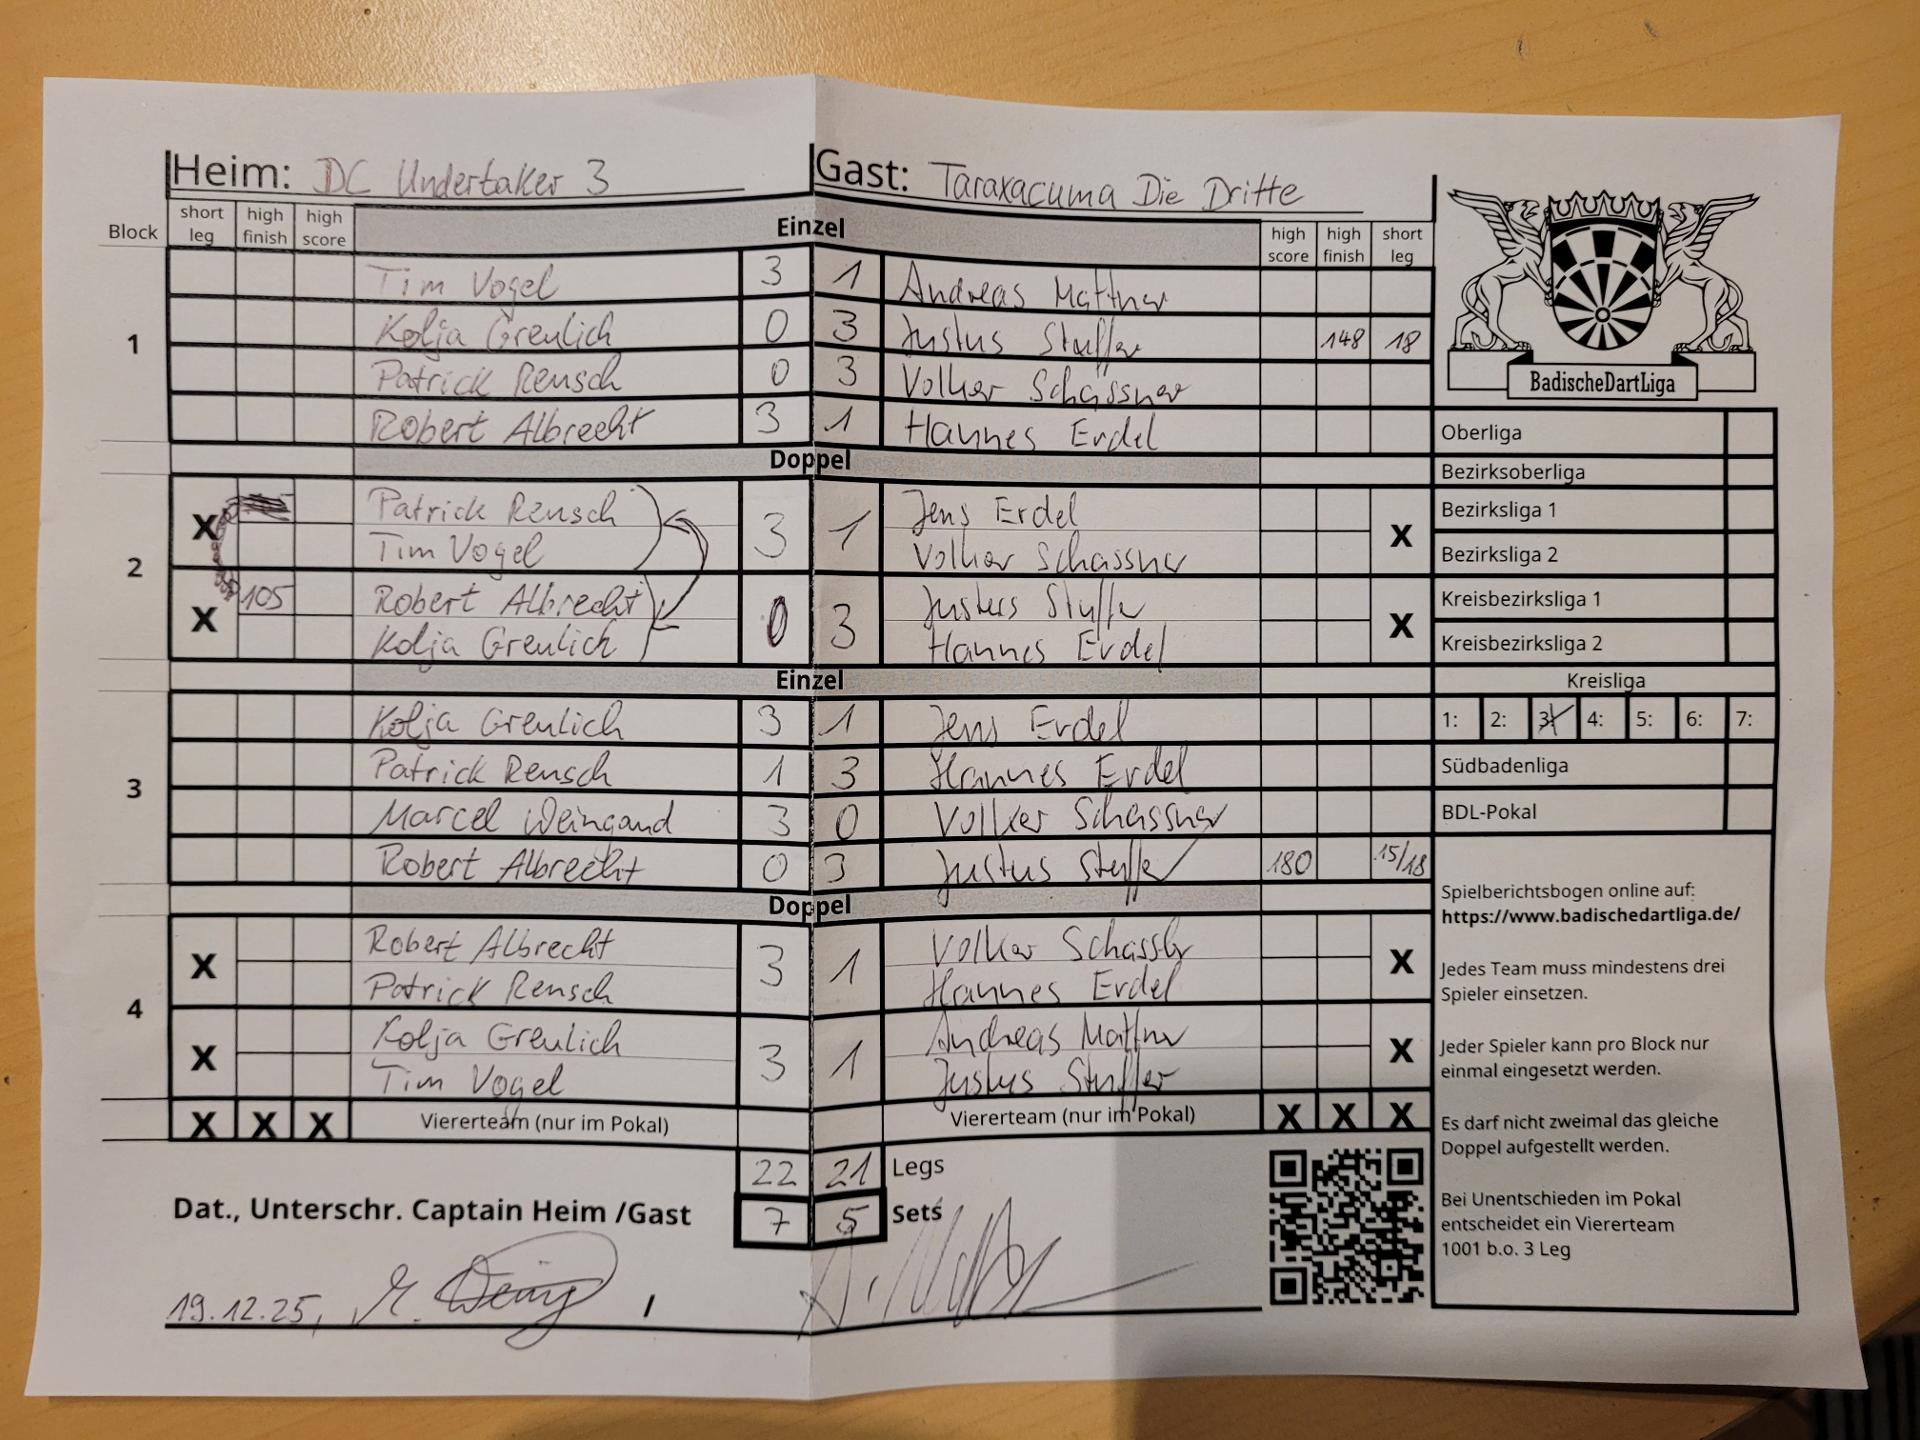 Heim: DC Undertaker 3 Gast: Taraxacuma Die Dritte
Block short leg high finish high score Einzel high score high finish short leg
1
Tim Vogel 3 1 Andreas Mattner
Kolja Greulich 0 3 Justus Stuffer 148 18
Patrick Rensch 0 3 Volker Schässner
Robert Albrecht 3 1 Hannes Erdel
Doppel
2
X Patrick Rensch 3 1 Jens Erdel X
Tim Vogel Volker Schassner
X 105 Robert Albrecht 0 3 Justus Stuffer X
Kolja Greulich Hannes Erdel
Einzel
3
Kolja Greulich 3 1 Jens Erdel
Patrick Rensch 1 3 Hannes Erdel
Marcel Weingand 3 0 Volker Schassner
Robert Albrecht 0 3 Justus Stuffer 180 15/18
Doppel
4
X Robert Albrecht 3 1 Volker X
Patrick Rensch Hannes Erdel
X Kolja Greulich 3 1 Andreas Mattner X
Tim Vogel Justus Stuffer
X X X Viererteam (nur im Pokal) Viererteam (nur im Pokal) X X X
22 21 Legs
7 5 Sets
Dat., Unterschr. Captain Heim /Gast
19.12.25, /
BadischeDartLiga
Oberliga
Bezirksoberliga
Bezirksliga 1
Bezirksliga 2
Kreisbezirksliga 1
Kreisbezirksliga 2
Kreisliga
1: 2: 3: 4: 5: 6: 7:
Südbadenliga
BDL-Pokal
Spielberichtsbogen online auf:
https://www.badischedartliga.de/
Jedes Team muss mindestens drei
Spieler einsetzen.
Jeder Spieler kann pro Block nur
einmal eingesetzt werden.
Es darf nicht zweimal das gleiche
Doppel aufgestellt werden.
Bei Unentschieden im Pokal
entscheidet ein Viererteam
1001 b.o. 3 Leg